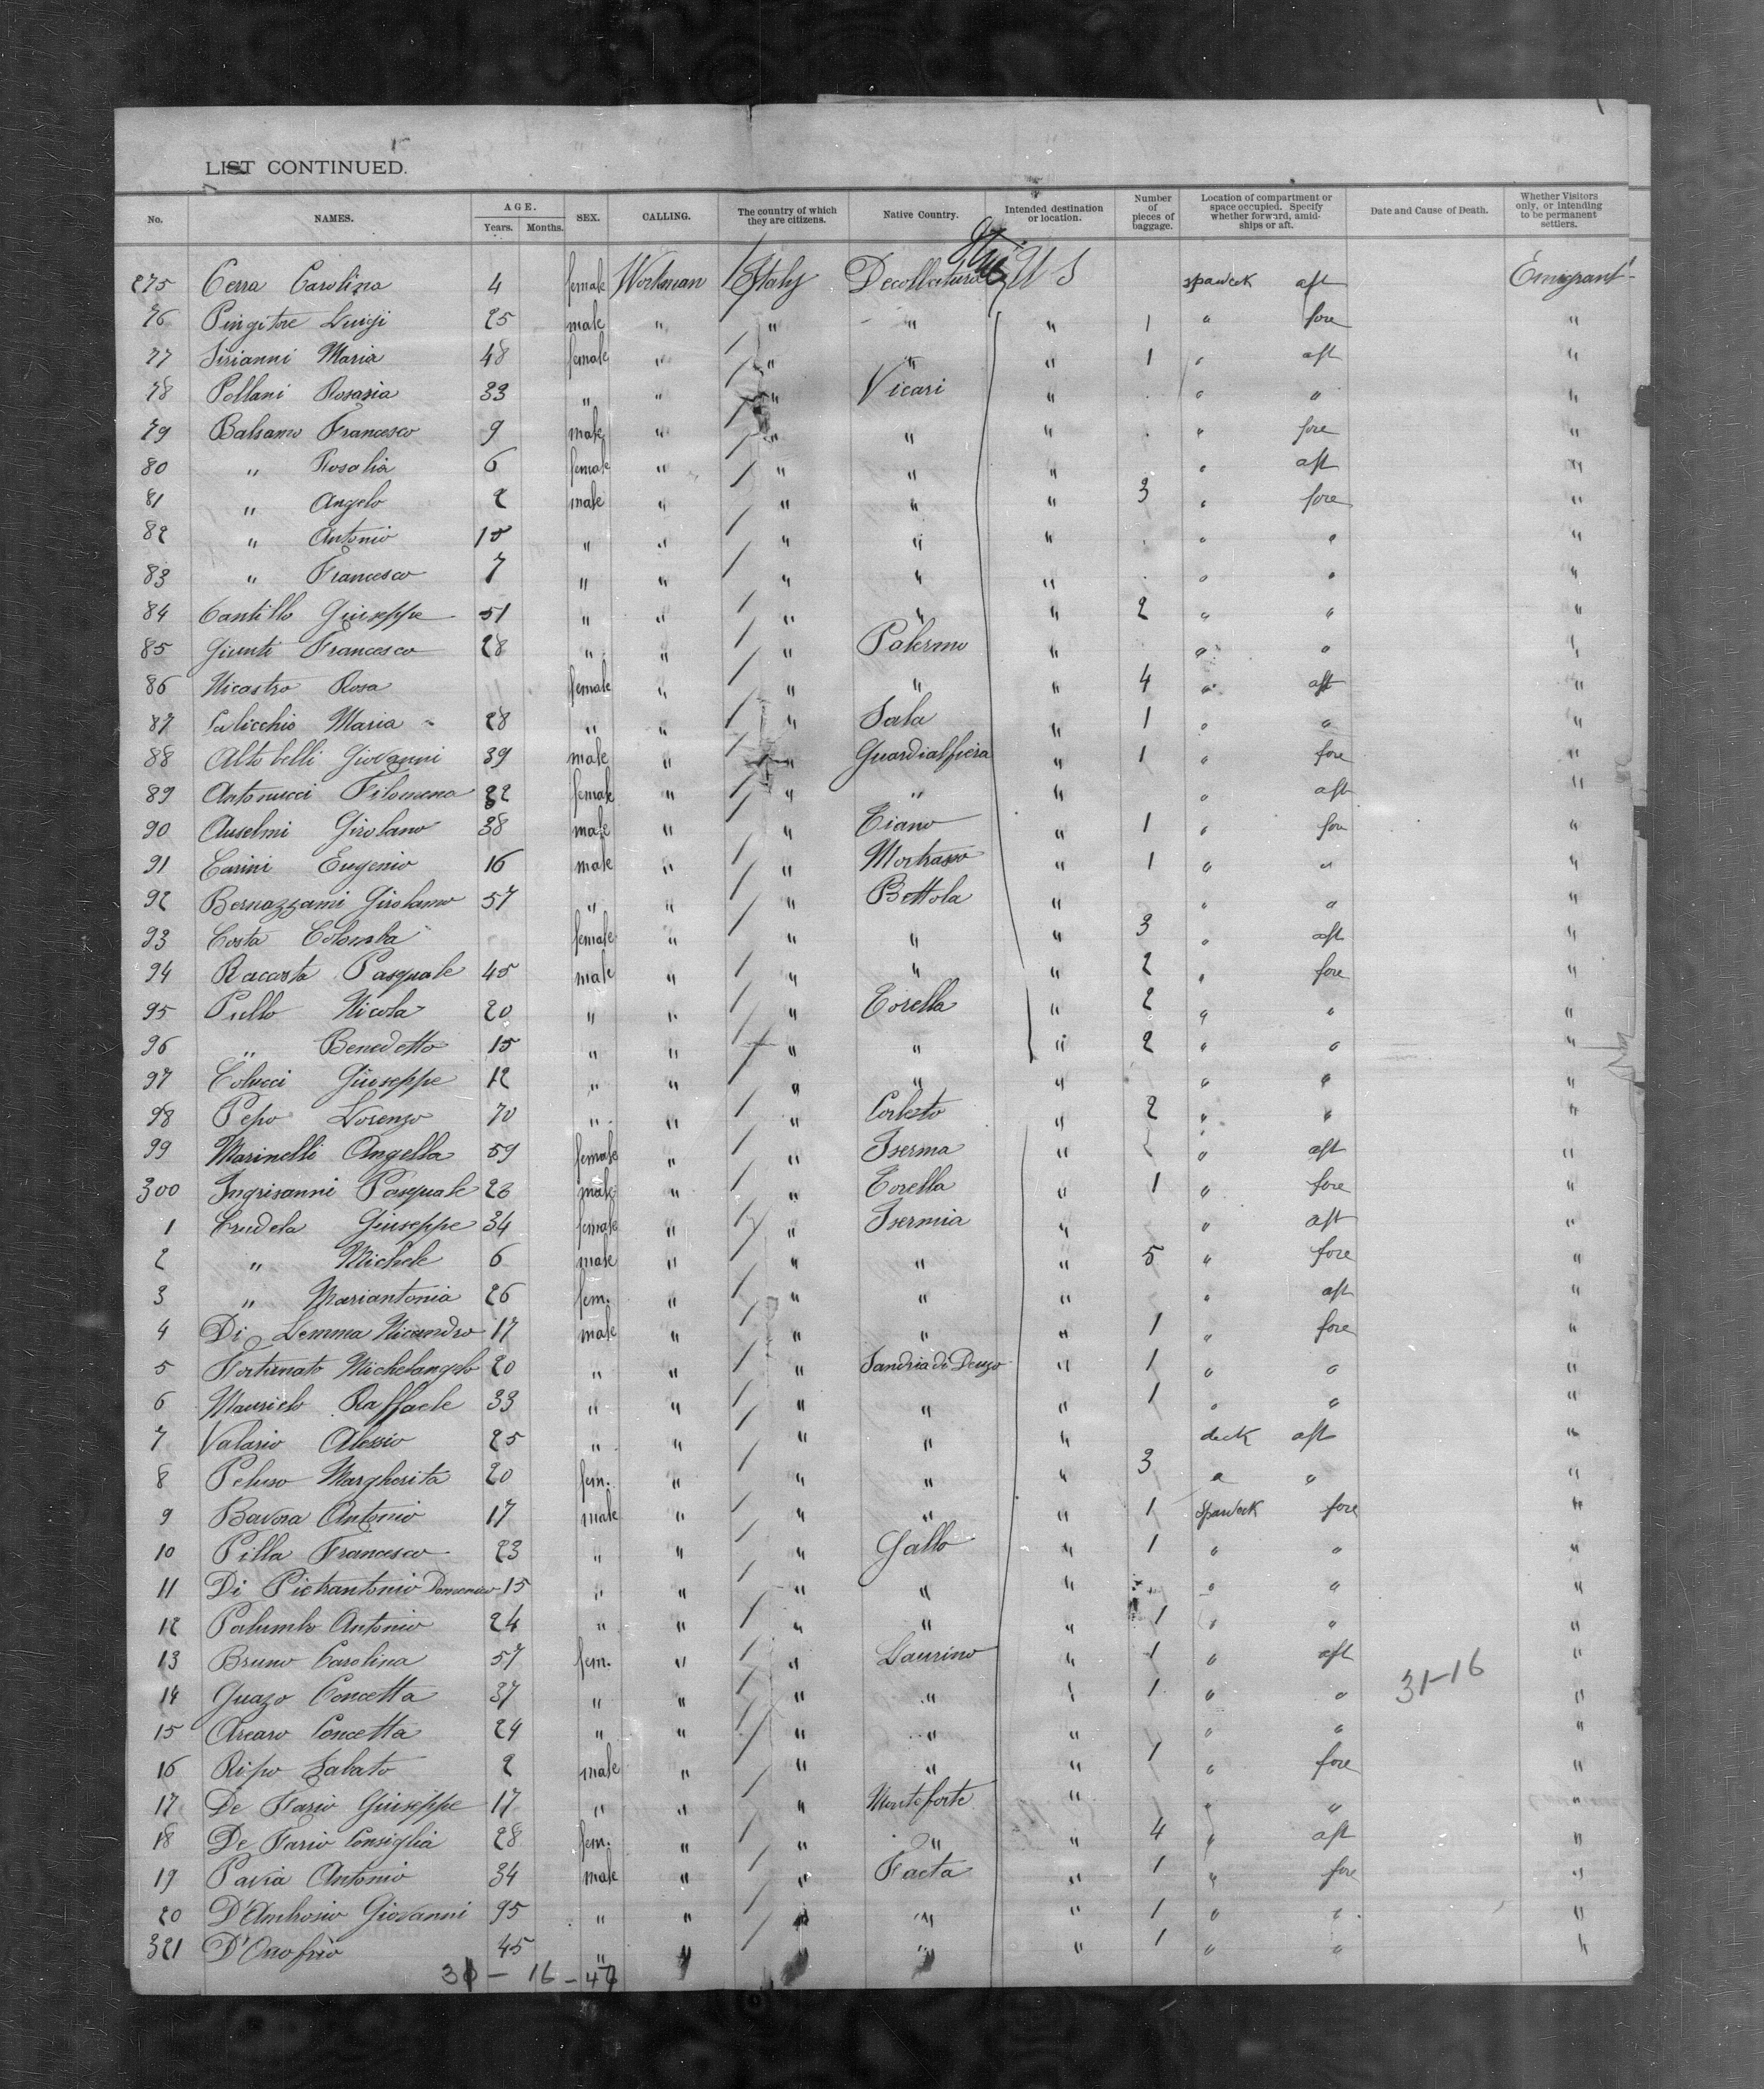 LIST CONTINUED.
No. NAMES. AGE. Years. Months. SEX. CALLING. The country of which they are citizens. Native Country. Intended destination or location. Number of pieces of baggage. Location of compartment or space occupied. Specify whether forward, amidships or aft. Date and Cause of Death. Whether Visitors only, or intending to be permanent settlers.
275 Cerra Carolina 4 female Workman / Italy Decollatura U S spardeck aft Emigrant
76 Pingitore Luigi 25 male " / " " " 1 " fore "
77 Sirianni Maria 48 female " / " " " 1 " aft "
78 Pollani Rosaria 33 " " / " Vicari " " " "
79 Balsamo Francesco 9 male " / " " " " fore "
80 " Rosalia 6 female " / " " " " aft "
81 " Angelo 2 male " / " " " 3 " fore "
82 " Antonio 15 " " / " " " " " "
83 " Francesco 7 " " / " " " " " "
84 Cantillo Giuseppe 51 " " / " " " 2 " " "
85 Giunti Francesco 28 " " / " Palermo " " " "
86 Nicastro Rosa female " / " " " 4 " aft "
87 Salicchio Maria 28 " " / " Sala " 1 " " "
88 Altobelli Giovanni 39 male " / " Guardialfiera " 1 " fore "
89 Antonucci Filomena 32 female " / " " " " aft "
90 Anselmi Girolamo 38 male " / " Tiano " 1 " fore "
91 Carini Eugenio 16 male " / " Mortasso " 1 " " "
92 Bernazzani Girolamo 57 " " / " Bettola " " " "
93 Costa Colomba female " / " " " 3 " aft "
94 Racosta Pasquale 45 male " / " " " 2 " fore "
95 Pullo Nicola 20 " " / " Torella " 2 " " "
96 " Benedetto 15 " " / " " " 2 " " "
97 Colucci Giuseppe 12 " " / " " " " " "
98 Pepo Lorenzo 70 " " / " Corleto " 2 " " "
99 Marinelli Angella 59 female " / " Iserma " " aft "
300 Ingrisanni Pasquale 26 male " / " Torella " 1 " fore "
1 Crudela Giuseppe 34 female " / " Isermia " " aft "
2 " Michele 6 male " / " " " 5 " fore "
3 " Mariantonia 26 fem. " / " " " " aft "
4 Di Lemma Nicandro 17 male " / " " " 1 " fore "
5 Fortunato Michelangelo 20 " " / " Sandria di Denzo " 1 " " "
6 Mauriclo Raffaele 33 " " / " " " 1 " " "
7 Valario Alessio 25 " " / " " " deck aft "
8 Peluso Margherita 20 fem. " / " " " 3 " " "
9 Bavosa Antonio 17 male " / " " " 1 spardeck fore "
10 Pilla Francesco 23 " " / " Gallo " 1 " " "
11 Di Pietrantonio Domenico 15 " " / " " " " " "
12 Palumbo Antonio 24 " " / " " " 1 " " "
13 Bruno Carolina 57 fem. " / " Laurino " 1 " aft "
14 Guazo Concetta 37 " " / " " " 1 " " 31-16 "
15 Arcaro Concetta 24 " " / " " " " " "
16 Ripo Sabato 2 male " / " " " 1 " fore "
17 De Fario Giuseppe 17 " " / " Monteforte " " " "
18 De Fario Consiglia 28 fem. " / " " " 4 " aft "
19 Pavia Antonio 34 male " / " Faeta " 1 " fore "
20 D'Ambrosio Giovanni 95 " " / " " " 1 " " "
321 D'Onofrio 45 " " / " " " 1 " " "
31 - 16 - 47